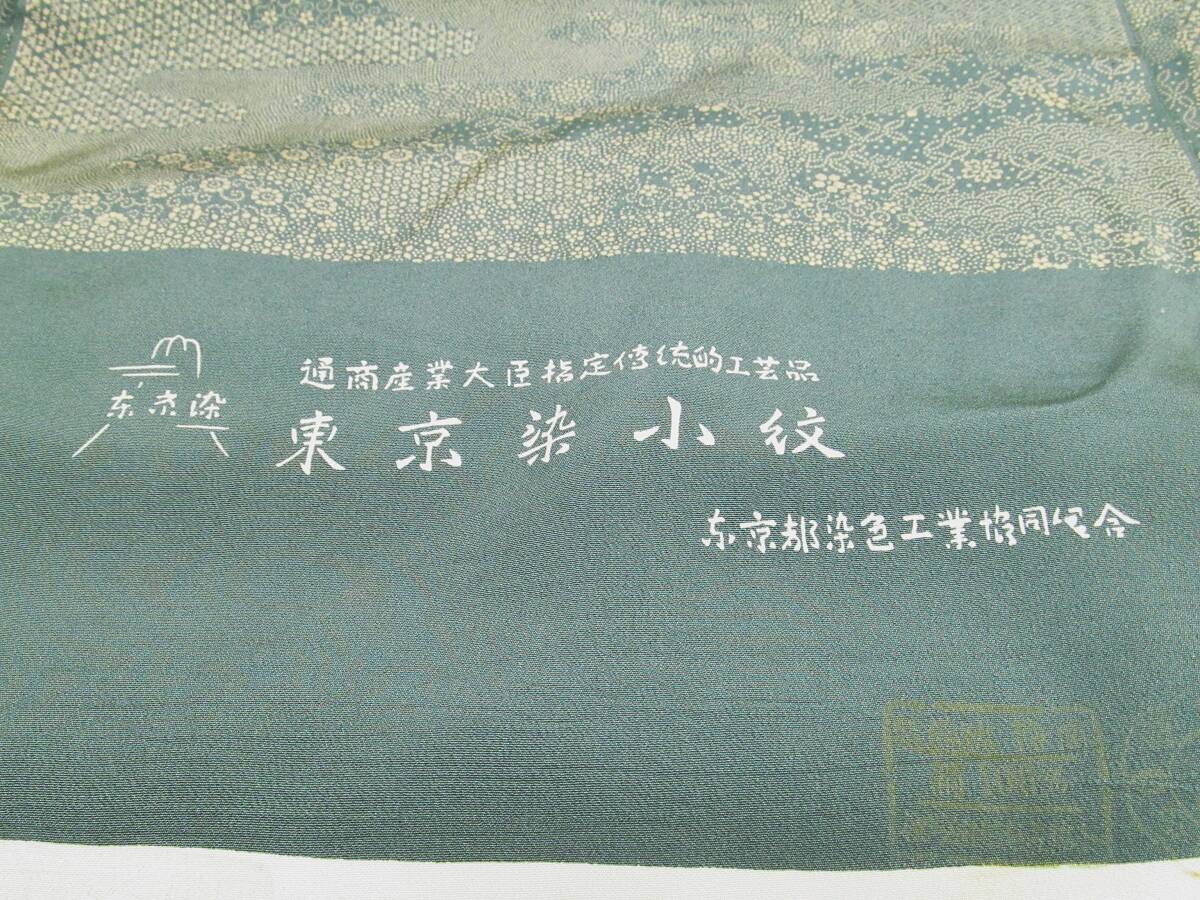 东京染
通商産業大臣指定傳统的工芸品
東京染小紋
东京都染色工業協同组合